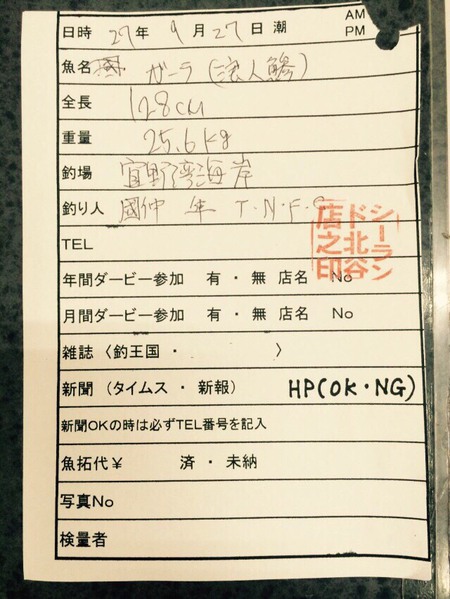 日時 27年 9月27日 潮 AM PM
魚名 ガーラ(浪人鯵)
全長 128cm
重量 25.6kg
釣場 宜野湾海岸
釣り人 國仲 T.N.F.C
シーラン
ド北谷
店之印
TEL
年間ダービー参加 有・無 店名 No
月間ダービー参加 有・無 店名 No
雑誌〈釣王国・ 〉
新聞(タイムス・新報) HP(OK・NG)
新聞OKの時は必ずTEL番号を記入
魚拓代¥ 済・未納
写真No
検量者